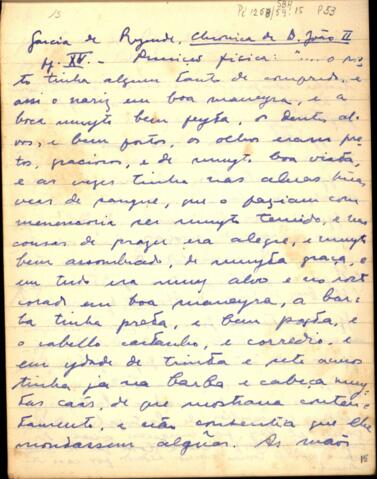 15
Pc 1268/59:15
SBH
P53
Garcia de Rezende, Chronica de D. João II
pg. XV. - physica: "... o ros
to tinha algum tanto de comprido, e
assi o nariz em boa maneyra, e a
boca muyto bem feyta, os dentes al
vos, e bem postos, os olhos eram pre
tos, graciosos, e de muyto boa vista,
e as vezes tinha nas aluas huas
veas de sangue, que o faziam com
menencoria ser muyto temido, e nas
cousas de prazer era alegre, e muyto
bem assombrado, de muyta graça, e
em tudo era muy alvo e no rosto
corado em boa maneyra, a bar
ba tinha preta, e bem posta, e
o cabello castanho, e corredio, e
em ydade de trinta e sete annos
tinha ja na barba e cabeça muy
tas caãs, de que mostraua conten
tamento, e não consentia que lhe
mondassem algũas. As mãos
15